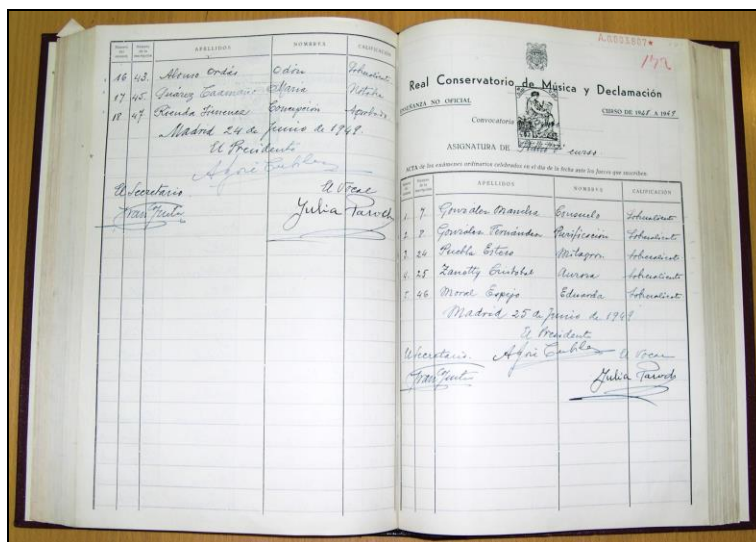 APELLIDOS NOMBRES CALIFICACIÓN
16 43. Alonso Ordás Odón Sobresaliente
17 45. Suárez Caamaño María Notable
18 47. Rienda Jimenez Concepción Aprobado
Madrid 24 de Junio de 1949
El Presidente
El Secretario El Vocal
Julia Parody
A.0003807
Real Conservatorio de Música y Declamación
ENSEÑANZA NO OFICIAL
CURSO DE 1948 A 1949
Convocatoria
ASIGNATURA DE Piano curso
ACTA de los exámenes ordinarios celebrados en el día de la fecha ante los Jueces que suscriben.
APELLIDOS NOMBRES CALIFICACIÓN
1. 7. González Consuelo Sobresaliente
2. 8. González Fernández Purificación Sobresaliente
3. 24 Puebla Estero Milagros Sobresaliente
4. 25 Zanetty Cristobal Aurora Sobresaliente
5. 46 Moral Espejo Eduarda Sobresaliente
Madrid 25 de Junio de 1949
El Presidente
El Secretario. El Vocal
Julia Parody